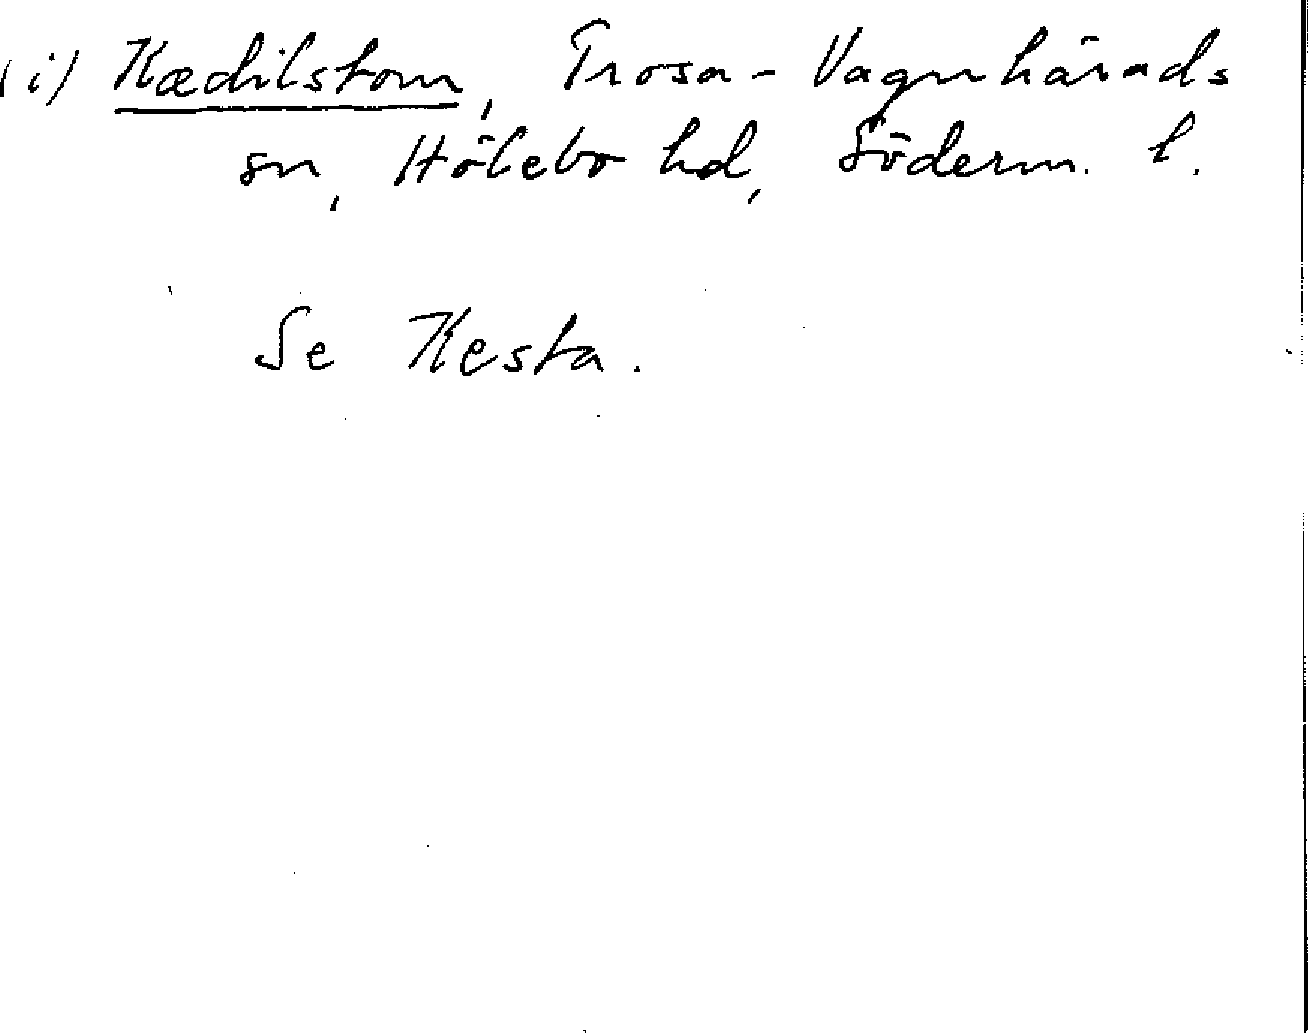 (i) Kædilstom, Trosa-Vagnhärads
sn, Hölebo hd, Söderm. l.
Se Kesta.